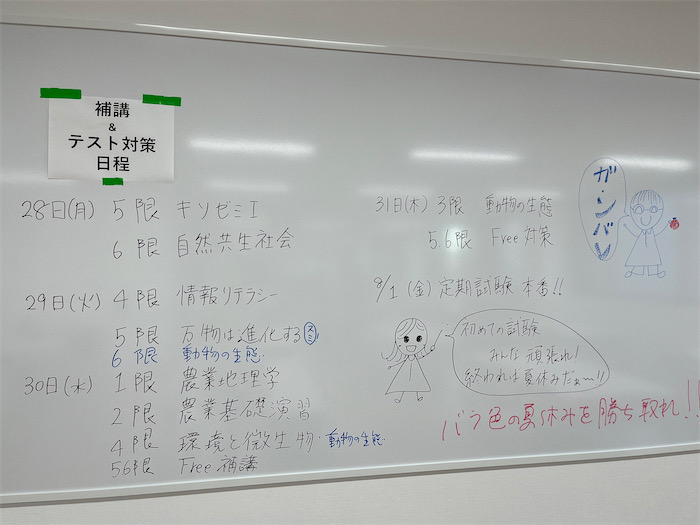 補講
&
テスト対策
日程
28日(月) 5限 キソゼミI
6限 自然共生社会
29日(火) 4限 情報リテラシー
5限 万物は進化する
6限 動物の生態.
30日(水) 1限 農業地理学
2限 農業基礎演習
4限 環境と微生物・動物の生態.
56限 Free 補講
31日(木) 3限 動物の生態
5.6限 Free 対策
8/1 (金) 定期試験 本番!!
ガンバレ
初めての試験
みんな 頑張れ!
終われば夏休みだぁ〜!!
バラ色の夏休みを勝ち取れ!!